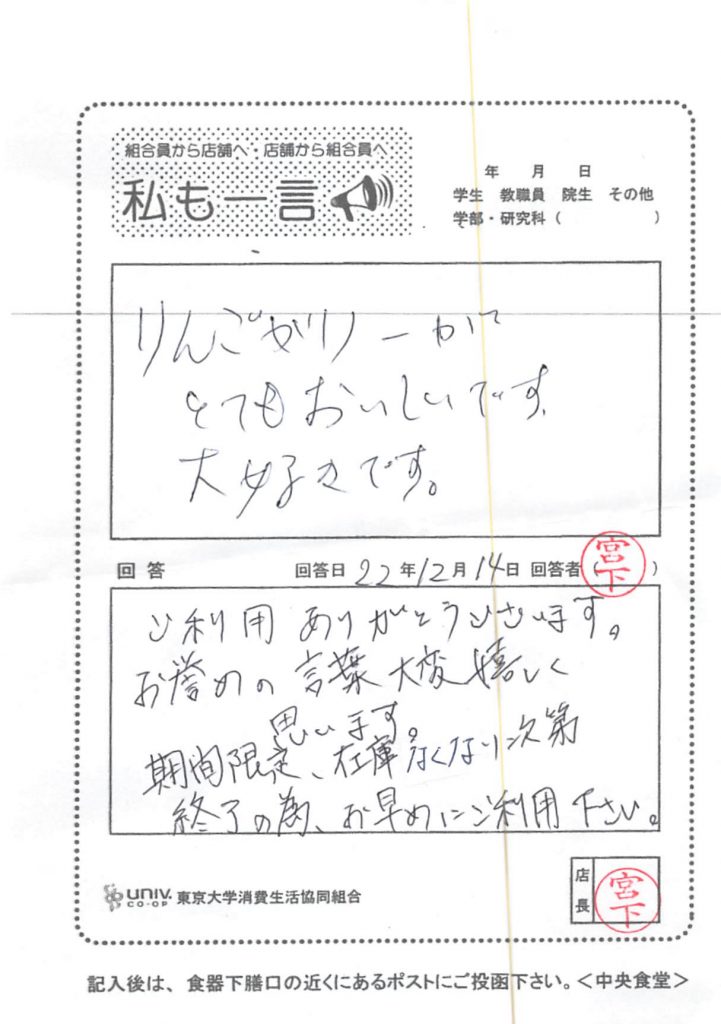 組合員から店舗へ・店舗から組合員へ
私も一言
年 月 日
学生 教職員 院生 その他
学部・研究科 ( )
とてもおいしいです。
大好きです。
回答 回答日 22年12月14日 回答者 (宮下)
ご利用ありがとうございます。
お誉めの言葉大変嬉しく
思います。
期間限定、在庫なくなり次第
終了の為、お早めにご利用下さい。
UNIV. CO-OP 東京大学消費生活協同組合
店長 宮下
記入後は、食器下膳口の近くにあるポストにご投函下さい。<中央食堂>